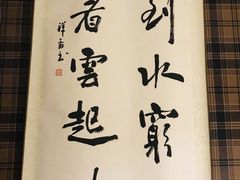 到水窮
看雲起
祥雲書